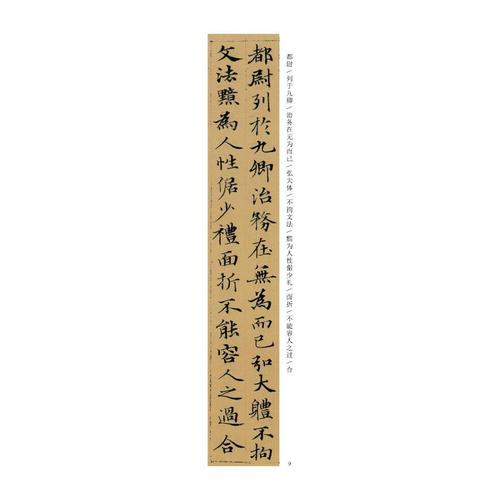 都尉列於九卿治務在無為而已弘大體不拘
文法黯為人性倨少禮面折不能容人之過合
都尉/列于九卿/治务在无为而已/弘大体/不拘文法/黯为人性倨少礼/面折/不能容人之过/合
9